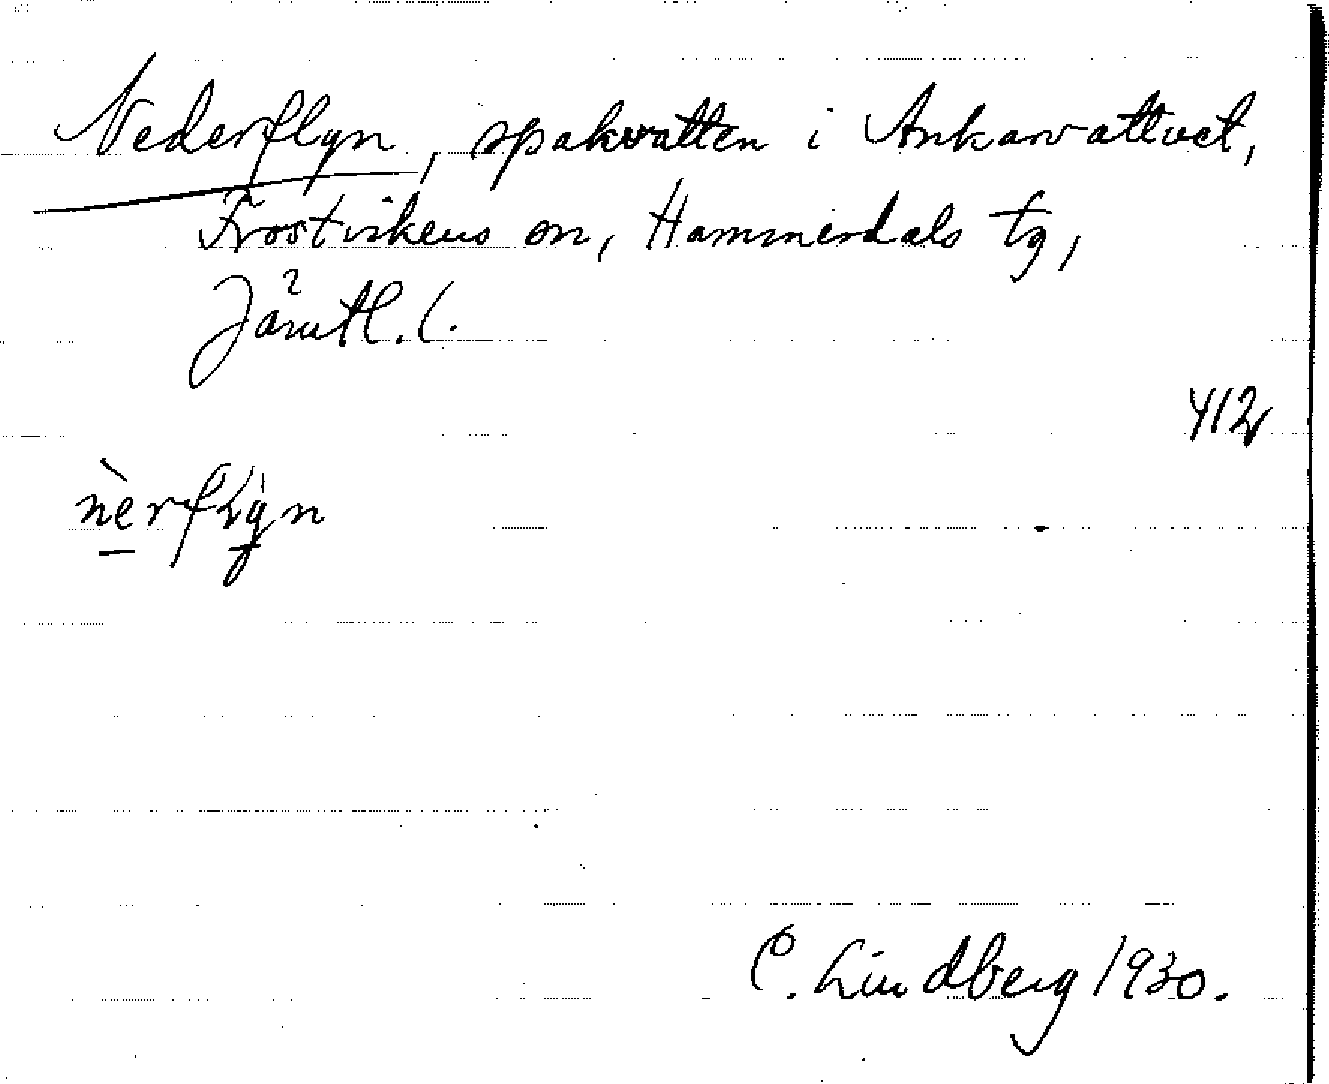 Nederflyn, spakvatten i Ankarvattnet,
Frostvikens sn, Hammerdals tg,
Jämtl. l.
412
nèrfLỳn
C. Lindberg 1930.